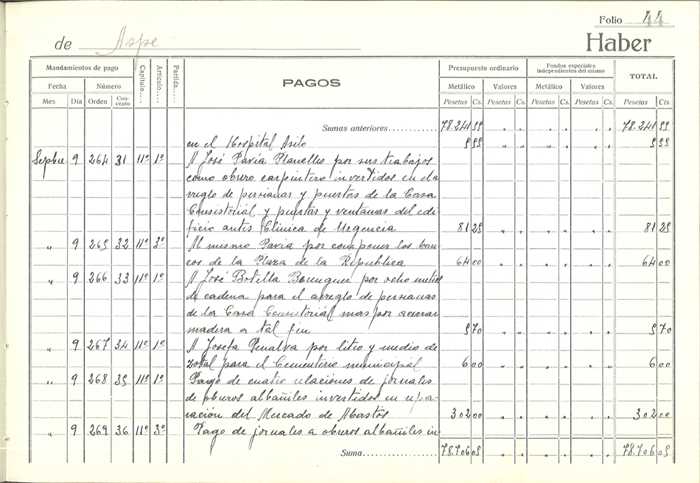 Folio 44
de Aspe Haber
Mandamientos de pago Capítulo Artículo Partida PAGOS Presupuesto ordinario Fondos especiales independientes del mismo TOTAL
Fecha Número Metálico Valores Metálico Valores
Mes Día Orden Concepto Pesetas Cs. Pesetas Cs. Pesetas Cs. Pesetas Cs. Pesetas Cts.
Sumas anteriores 78.241 55 " " " " " " 78.241 55
en el Hospital Asilo 5 55 " " " " " " 5 55
Sepbre 9 264 31 11º 1º A José Pavia Planelles por sus trabajos
como obrero carpintero invertidos en el a
rreglo de persianas y puertas de la Casa
Consistorial y puertas y ventanas del edi
ficio antes Clínica de Urgencia 81 25 " " " " " " 81 25
" 9 265 32 11º 3º Al mismo Pavia por componer los ban
cos de la Plaza de la República 64 00 " " " " " " 64 00
" 9 266 33 11º 1º A José Botella Berenguer por ocho metros
de cadena para el arreglo de persianas
de la Casa Consistorial mas por acerrar
madera a tal fin 5 70 " " " " " " 5 70
" 9 267 34 11º 1º A Josefa Penalva por litro y medio de
zotal para el Cementerio municipal 6 00 " " " " " " 6 00
" 9 268 35 11º 1º Pago de cuatro relaciones de jornales
de obreros albañiles invertidos en repa
ración del Mercado de Abastos 302 00 " " " " " " 302 00
" 9 269 36 11º 3º Pago de jornales a obreros albañiles in
Suma 78.706 05 " " " " " " 78.706 05